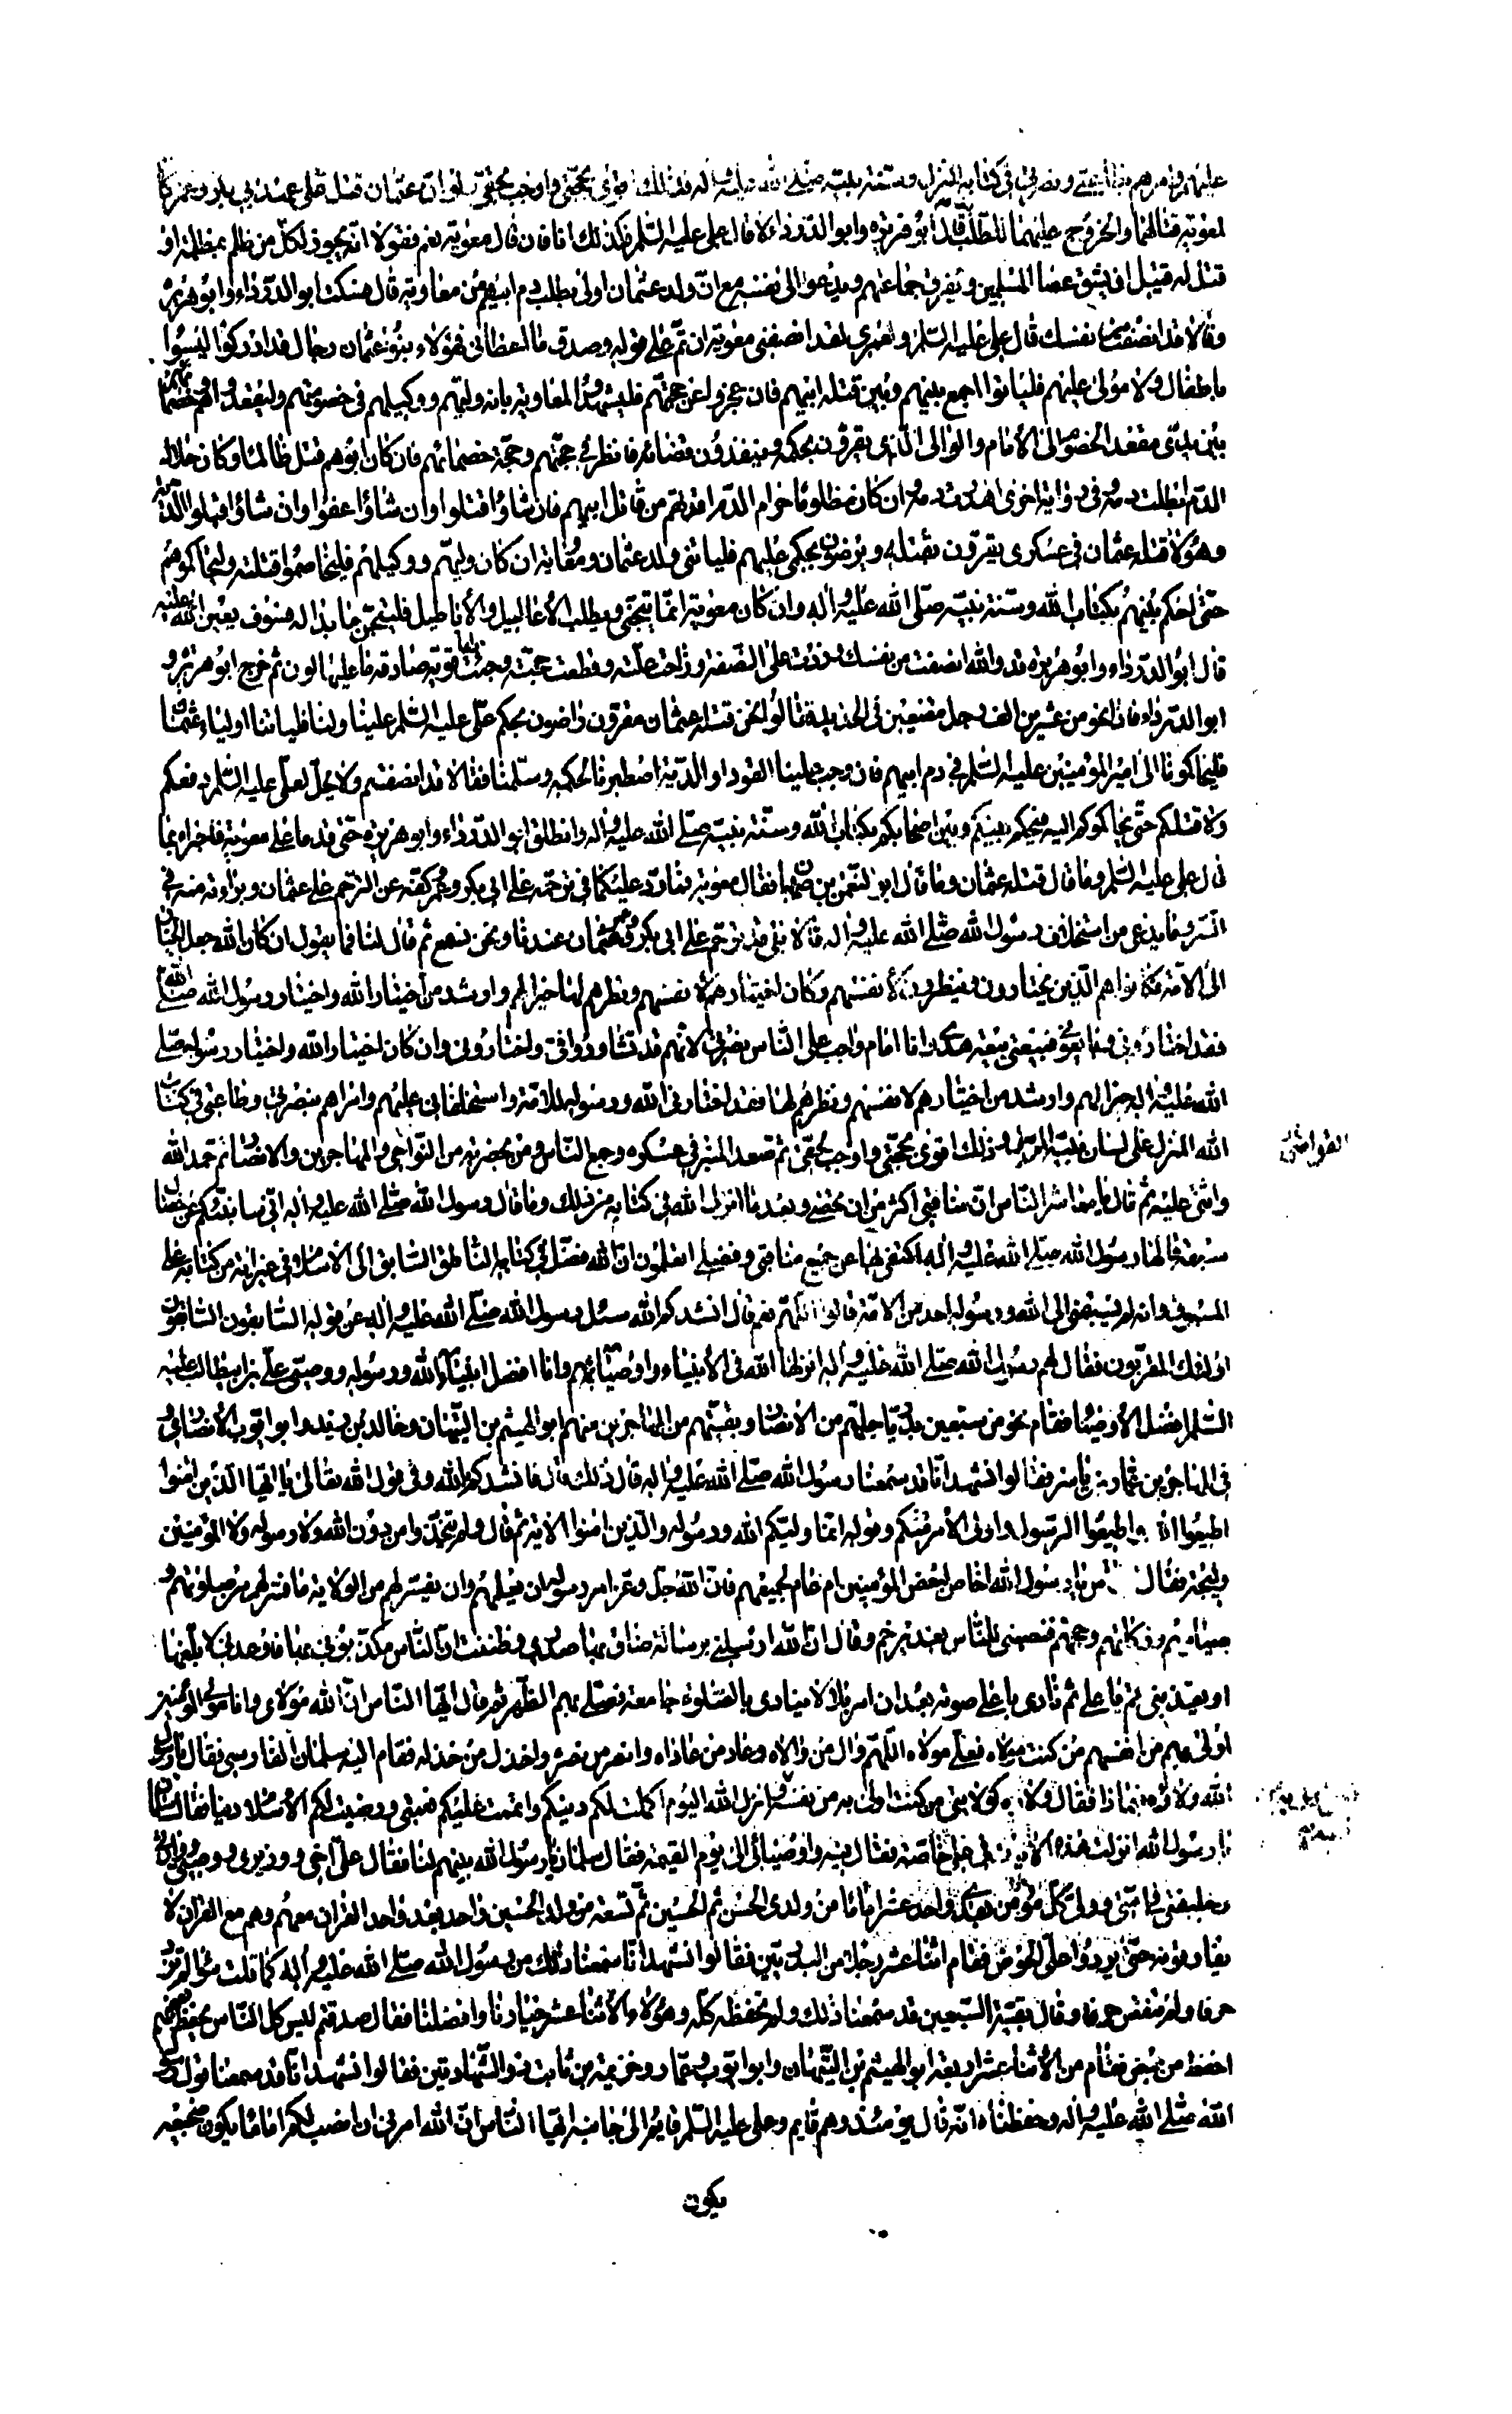 عليهم وامرهم ببيعتي ونصرتي في كتابه المنزل وسنة نبيه صلى الله عليه واله فذلك اقوى بحجتي واوجب بحقي ولو ان عثمان قتل على عهد ابي بكر وعمر كان
لمعوية قتالهما والخروج عليهما للطلب قالا ابو هريرة وابو الدرداء لا قال علي عليه السلم فكذلك انا فان قال معوية نعم فقولا اذا يجوز لكل من ظلم بمظلمة او
قتل له قتيل ان يشق عصا المسلمين ويفرق جماعتهم ويدعوا الى نفسه مع ان ولد عثمان اولى بطلب دم ابيهم من معاوية قال فسكت ابو الدرداء وابو هريرة
وقالا قد انصفت من نفسك قال علي عليه السلم ولعمري لقد انصفني معوية ان تم على قوله وصدق ما اعطاني فهؤلاء بنو عثمان رجال قد ادركوا ليسوا
باطفال ولا مولى عليهم فلياتوا اجمع بينهم وبين قتلة ابيهم فان عجزوا عن حجتهم فليشهدوا لمعاوية بانه وليهم ووكيلهم في خصومتهم وليقعدوا هم وخصماؤهم
بين يدي مقعد الخصوم الى الامام والوالي الذي يقرون بحكمه وينفذون قضائه فانظر في حجتهم وحجة خصمائهم فان كان ابوهم قتل ظالما وكان حلال
الدم ابطلت دمه وفي رواية اخرى اهدرت دمه وان كان مظلوما حرام الدم اقدتهم من قاتل ابيهم فان شاؤا قتلوا وان شاؤا عفوا وان شاؤا قبلوا الدية
وهؤلاء قتلة عثمان في عسكري يقرون بقتله ويرضون بحكمي عليهم فلياتني ولد عثمان ومعاوية ان كان وليهم ووكيلهم فليخاصموا قتلته وليحاكموهم
حتى احكم بينهم بكتاب الله وسنة نبيه صلى الله عليه واله وان كان معوية انما يتجنى ويطلب الاعاليل والاباطيل فليتجن ما بدا له فسوف يعين الله عليه
قال ابو الدرداء وابو هريرة قد والله انصفت من نفسك وزدت على النصفة وزاحت علته وقطعت حجته وجئت بحجة قوية صادقة ما عليها لون ثم خرج ابو هريرة و
ابو الدرداء فاذا نحو من عشرين الف رجل مقنعين في الحديد فقالوا نحن قتلة عثمان مقرون راضون بحكم علي عليه السلم علينا ولنا فلياتنا اولياء عثمان
فليحاكمونا الى امير المؤمنين عليه السلم في دم ابيهم فان وجب علينا القود او الدية اصطبرنا لحكمه وسلمنا فقالا قد انصفتم ولا يحل لعلي عليه السلم دفعكم
ولا قتلكم حتى يحاكموكم اليه فيحكم بينكم وبين صاحبكم بكتاب الله وسنة نبيه صلى الله عليه واله وانطلق ابو الدرداء وابو هريرة حتى قدما على معوية فاخبراه بما
قال علي عليه السلم وما قال قتلة عثمان وما قال ابو النعمن بن ضمان فقال معوية فما رد عليكما في ترحمه على ابي بكر وعمر وكفه عن الترحم على عثمان وبراءته منه في
السر وما يدعي من استخلاف رسول الله صلى الله عليه واله قالا بلى قد ترحم على ابي بكر وعمر وعثمان عندنا ونحن نسمع ثم قال لنا فيما يقول ان كان الله جعل الخيار
الى الامة فكانوا هم الذين يختارون وينظرون لانفسهم وكان اختيارهم لانفسهم ونظرهم لها خيرا لهم وارشد من اختيار الله واختيار رسول الله صلى الله
فقد اختاروني وبايعوني فبيعتي بيعة هدى وانا امام واجب على الناس نصرتي لانهم قد تشاوروا في واختاروني وان كان اختيار الله واختيار رسوله صلى
الله عليه واله خيرا لهم وارشد من اختيارهم لانفسهم ونظرهم لها فقد اختارني الله ورسوله للامة واستخلفاني عليهم وامراهم بنصرتي وطاعتي في كتاب
الله المنزل على لسان نبيه المرسل وذلك اقوى بحجتي واوجب لحقي ثم صعد المنبر في عسكره وجمع الناس ومن بحضرته من النواحي والمهاجرين والانصار ثم حمد الله
واثنى عليه ثم قال يا معاشر الناس ان مناقبي اكثر من ان تحصى وبعد ما انزل الله في كتابه من ذلك وما قال رسول الله صلى الله عليه واله اني سانبئكم عن خصال
سبعة قالها رسول الله صلى الله عليه واله اكتفي بها عن جميع مناقبي وفضلي اتعلمون ان الله فضل في كتابه الناطق السابق الى الاسلام في غير اية من كتابه على
المسبوق وانه لم يسبقني الى الله ورسوله احد من الامة قالوا اللهم نعم قال انشدكم الله سئل رسول الله صلى الله عليه واله عن قوله السابقون السابقون
اولئك المقربون فقال لهم رسول الله صلى الله عليه واله انزلها الله في الانبياء واوصيائهم وانا افضل انبياء الله ورسوله ووصيي علي بن ابيطالب عليه
السلم افضل الاوصياء فقام نحو من سبعين بدريا جلهم من الانصار وبقيتهم من المهاجرين منهم ابو الهيثم بن التيهان وخالد بن زيد ابو ايوب الانصاري و
في المهاجرين عمار بن ياسر فقالوا نشهد انا قد سمعنا رسول الله صلى الله عليه واله قال ذلك قال فانشدكم الله في قول الله تعالى يا ايها الذين امنوا
اطيعوا الله واطيعوا الرسول واولى الامر منكم وقوله انما وليكم الله ورسوله والذين امنوا الاية ثم قال ولم يتخذوا من دون الله ولا رسوله ولا المؤمنين
وليجة فقال الناس يا رسول الله اخاص لبعض المؤمنين ام عام لجميعهم فان الله جل وعز امر رسوله ان يعلمهم وان يفسر لهم من الولاية ما فسر لهم من صلوتهم و
صيامهم وزكاتهم وحجهم فنصبني للناس بغدير خم وقال ان الله ارسلني برسالة ضاق بها صدري وظننت ان الناس مكذبوني بها فاوعدني لابلغنها
او يعذبني قم يا علي ثم نادى باعلى صوته بعد ان امر بلالا فينادي بالصلوة جامعة فصلى بهم الظهر ثم قال ايها الناس ان الله مولاي وانا مولى المؤمنين
اولى بهم من انفسهم من كنت مولاه فعلي مولاه اللهم وال من والاه وعاد من عاداه وانصر من نصره واخذل من خذله فقام اليه سلمان الفارسي فقال يا رسول
الله ولاؤه بماذا فقال ولاؤه كولايتي من كنت اولى به من نفسه وانزل الله اليوم اكملت لكم دينكم واتممت عليكم نعمتي ورضيت لكم الاسلام دينا فقال سلمان
يا رسول الله انزلت هذه الايات في علي خاصة فقال فيه واوصيائي الى يوم القيمة فقال سلمان يا رسول الله بينهم لنا فقال علي اخي ووزيري ووصيي ووارثي
وخليفتي في امتي وولي كل مؤمن بعدي واحد عشر اماما من ولدي الحسن ثم الحسين ثم تسعة من ولد الحسين واحد بعد واحد القران معهم وهم مع القران لا
يفارقونه حتى يردوا علي الحوض فقام اثنا عشر رجلا من البدريين فقالوا نشهد انا سمعنا ذلك من رسول الله صلى الله عليه واله كما قلت سواء لم تزد
حرفا ولم تنقص حرفا وقال بقية السبعين قد سمعنا ذلك ولم نحفظه كله وهؤلاء الاثنا عشر خيارنا وافضلنا فقال صدقتم ليس كل الناس يحفظ بعضهم
احفظ من بعض فقام من الاثنا عشر اربعة ابو الهيثم بن التيهان وابو ايوب وعمار وخزيمة بن ثابت ذو الشهادتين فقالوا نشهد انا قد سمعنا قول رسول
الله صلى الله عليه واله وحفظناه انه قال يومئذ وهو قايم وعلي عليه السلم قايم الى جانبه ايها الناس ان الله امرني ان انصب لكم اماما يكون وصيي
يكون